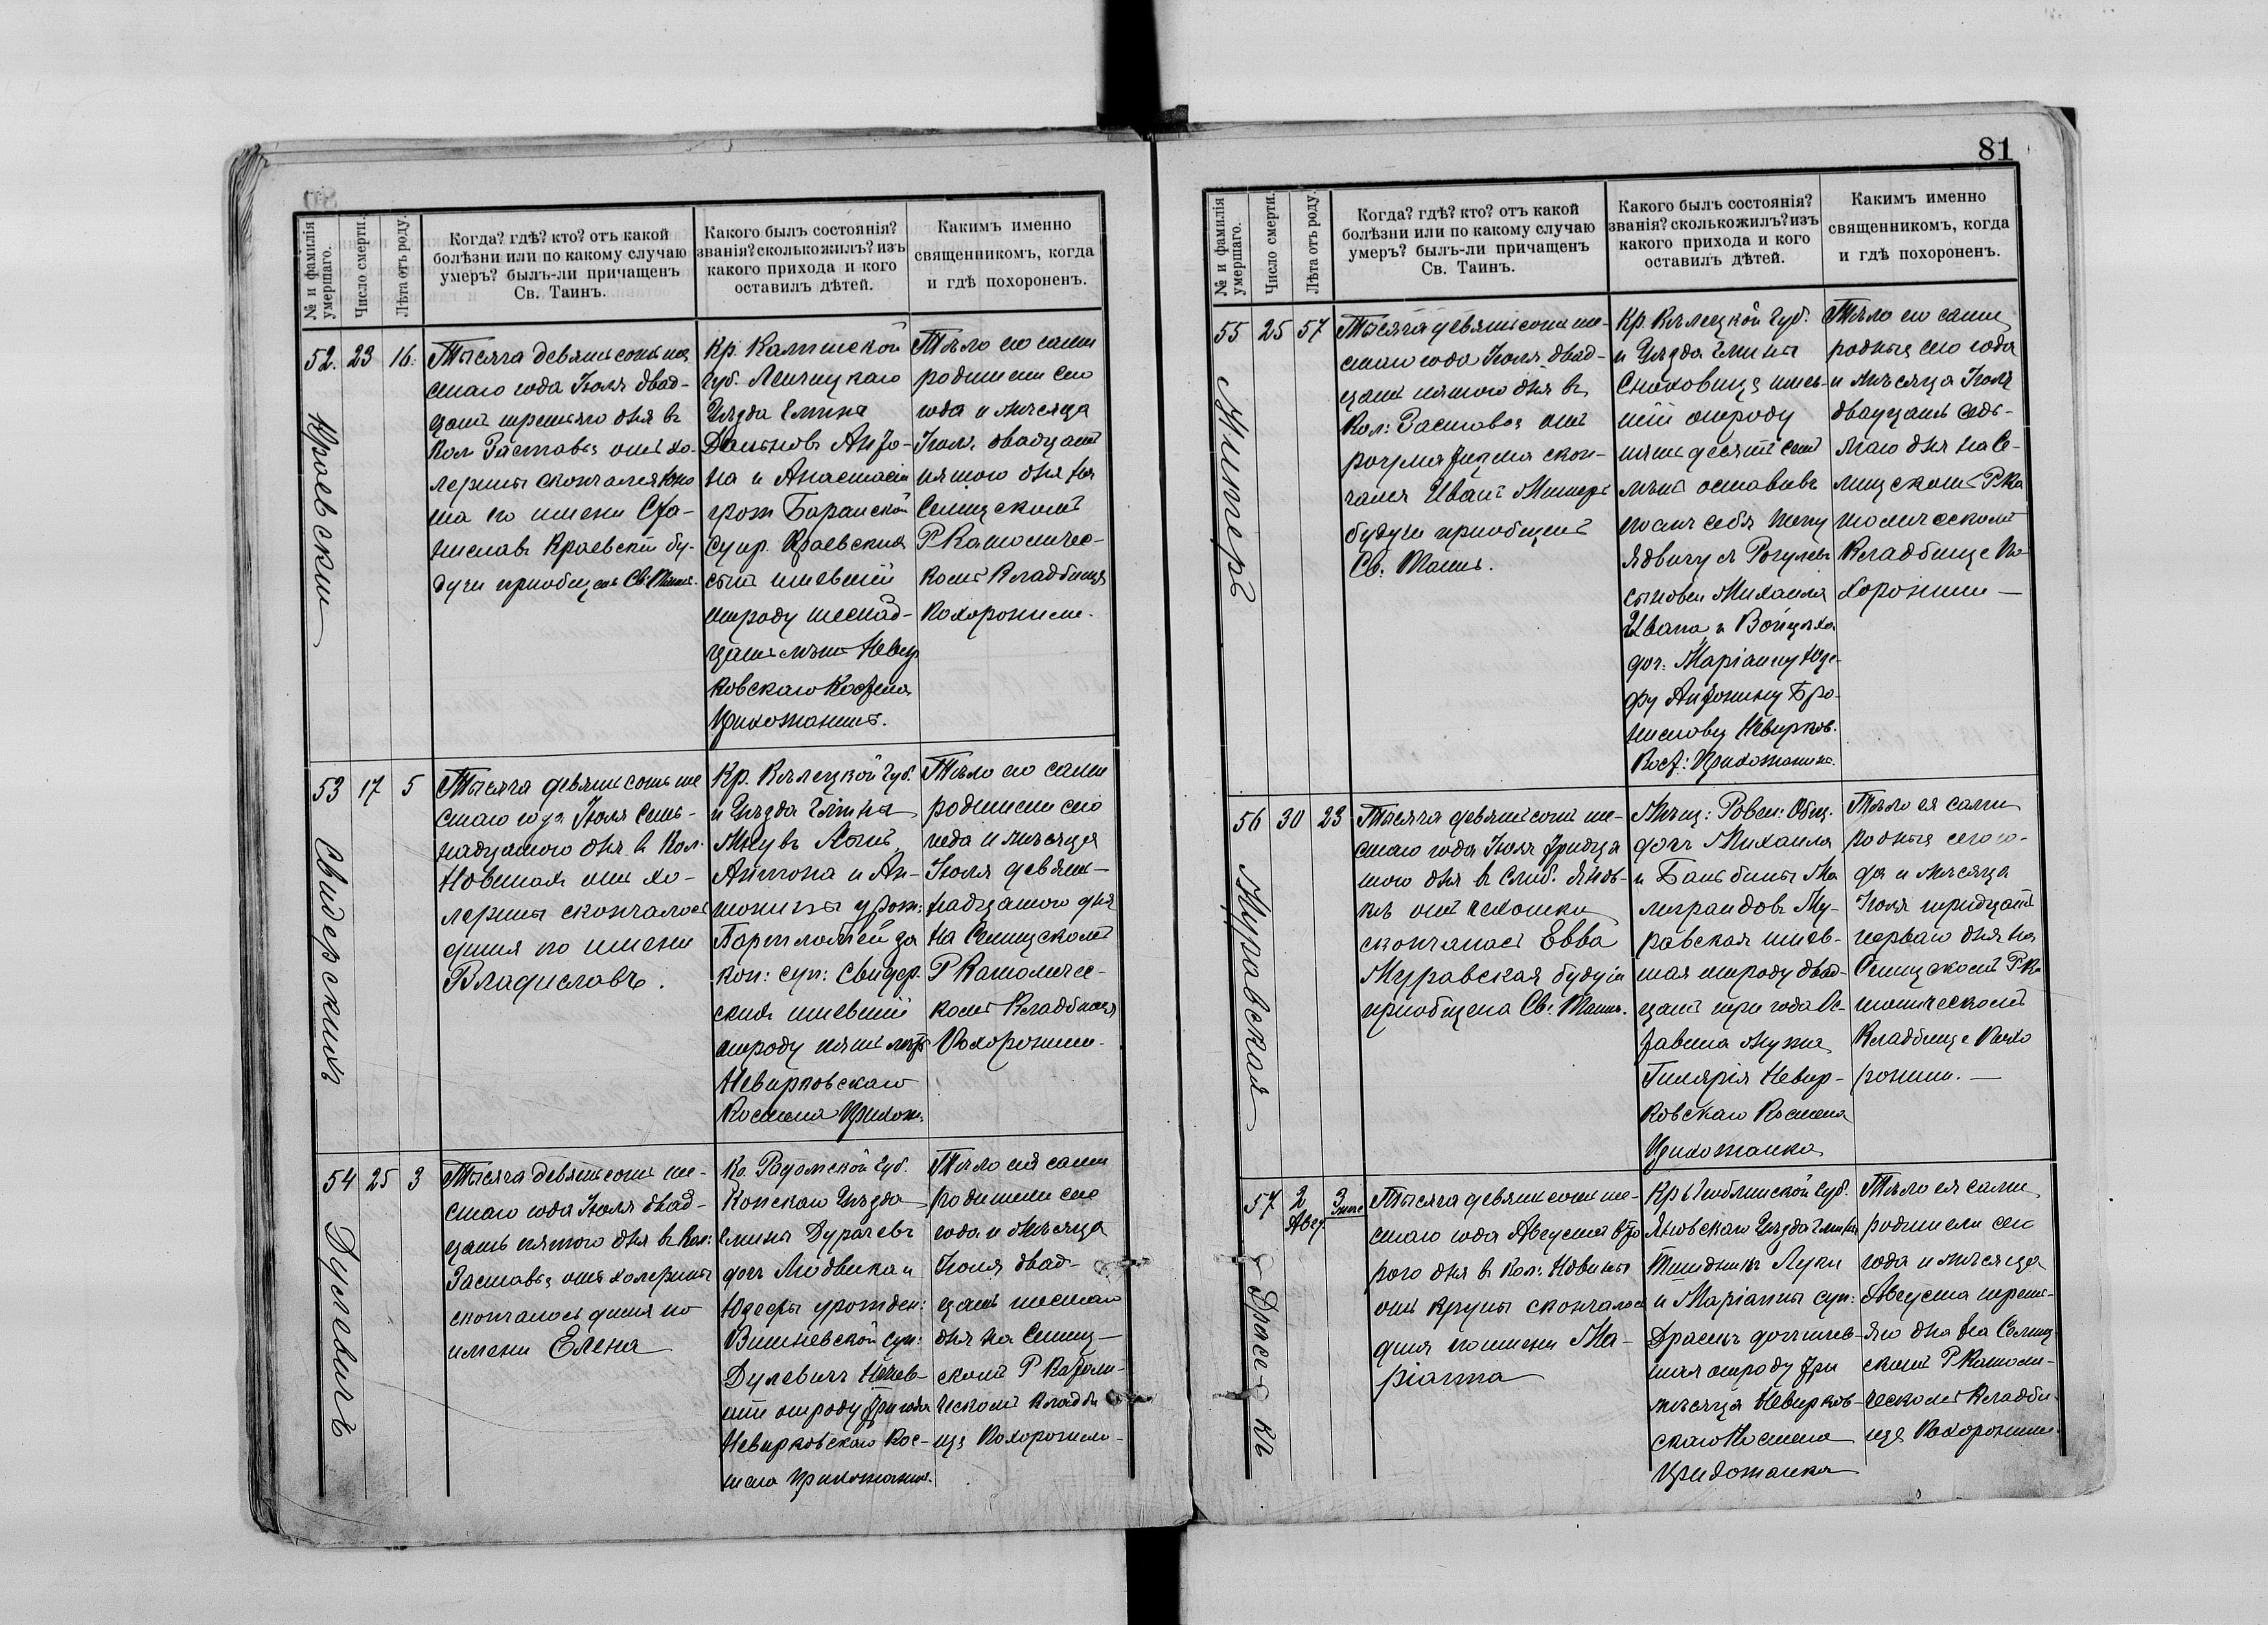 81
№ и фамилія умершаго.
Число смерти.
Лѣта отъ роду.
Когда? гдѣ? кто? отъ какой
болѣзни или по какому случаю
умеръ? былъ-ли причащенъ
Св. Таинъ.
Какого былъ состоянія?
званія? сколько жилъ? изъ
какого прихода и кого
оставилъ дѣтей.
Каким именно
священникомъ, когда
и гдѣ похороненъ.
52. 23 16.
Краевскій
Тысяча девятьсотъ ше
стаго года Іюля двад-
цать третьяго дня въ
Кол. Заставье отъ хо-
лерины скончался Юно
ша по имени Ста-
ниславъ Краевскій бу-
дучи приобщенъ Св. Таинъ.
Кр. Калишской
Губ. Ленчицкаго
Уѣзда Гмины
на и Анастасіи
Супр. Краевскихъ
сынъ имевшій
отроду шеснад-
цать лѣтъ Невир
ковскаго Костела
Прихожанинъ.
Тѣло его сами
родители сего
года и мѣсяца
Іюля двадцать
пятого дня на
Селищскомъ
Р Католичес-
комъ Кладбище
Похоронили.
53 17 5
Свидерскихъ
Тысяча девятьсотъ ше
стаго года Іюля семь-
надцатого дня в Кол.
Новинах отъ хо-
лерины скончалось
дитя по имени
Владиславъ.
Кр. Кѣлецкой Губ.
и Уѣзда Гмины
Антона и Ан-
тонины урож:
суп: Свидер-
скихъ имевшій
отроду пять лѣтъ
Невирковскаго
Костела Прихож.
Тѣло его сами
родители сего
года и мѣсяца
Іюля девят-
надцатого дня
на Селищскомъ
Р Католичес-
комъ Кладбище
Похоронили.
54 25 3
Дулевичъ
Тысяча девятьсотъ ше-
стаго года Іюля двад-
цать пятого дня в Кол:
Заставье отъ холерины
скончалось дитя по
имени Елена
Кр. Радомской Губ.
Конскаго Уѣзда
Гмины
дочь Людвика и
Юзефы урожден:
Вишневской суп:
Дулевичъ
отроду три года
Невирковскаго Кос-
тела Прихожанка.
Тѣло ея сами
родители сего
года и мѣсяца
Іюля двад-
цать шестаго
дня на Селищ-
скомъ Р Католи-
ческомъ Кладби
ще Похоронили.
№ и фамилія умершаго.
Число смерти.
Лѣта отъ роду.
Когда? гдѣ? кто? отъ какой
болѣзни или по какому случаю
умеръ? былъ-ли причащенъ
Св. Таинъ.
Какого былъ состоянія?
званія? сколько жилъ? изъ
какого прихода и кого
оставилъ дѣтей.
Какимъ именно
священникомъ, когда
и гдѣ похороненъ.
55 25 57
Тысяча девятьсотъ ше-
стаго года Іюля двад-
цать пятого дня в
Кол: Заставье отъ
скон-
чался Иванъ
будучи приобщенъ
Св. Таинъ.
Кр. Кѣлецкой Губ.
и Уѣзда Гмины
имев-
шій отроду
пятьдесятъ семь
лѣтъ оставивъ
после себя жену
Ядвигу
сыновей Михаила
Ивана и Войцѣха
доч: Маріанну Юзе-
фу Антонину Бро-
ниславу Невирков.
Кост: Прихожанинъ.
Тѣло его сами
родныя сего года
и мѣсяца Іюля
двадцать седь-
маго дня на Се-
лищскомъ Р Ка
толическомъ
Кладбище По-
хоронили —
56 30 23
Муравская
Тысяча девятьсотъ ше-
стаго года Іюля тридца
того дня в Слоб. Янов-
кѣ отъ
скончалась Евва
Муравская будучи
приобщена Св. Таинъ.
Мѣщ: Ровен: Общ.
дочь Михаила
и Бальбины
Му-
равская имев-
шая отроду двад-
цать три года Ос-
тавила мужа
Гилярія Невир-
ковскаго Костела
Прихожанка
Тѣло ея сами
родныя сего го-
да и мѣсяца
Іюля тридцать
перваго дня на
Селищскомъ Р Ка
толическомъ
Кладбище Похо
ронили. —
57 2 Авг. 3 мѣс
Тысяча девятьсотъ ше-
стаго года Августа вто
рого дня в Кол: Новины
отъ крупы скончалось
дитя по имени Ма-
ріанна
Кр. Люблинской Губ.
Яновскаго Уѣзда Гмины
Луки
и Маріанны суп:
дочь имев-
шая отроду три
мѣсяца Невирков-
скаго Костела
Прихожанка
Тѣло ея сами
родители сего
года и мѣсяца
Августа треть-
яго дня на Селищ-
скомъ Р Католи-
ческомъ Кладби-
ще Похоронили.